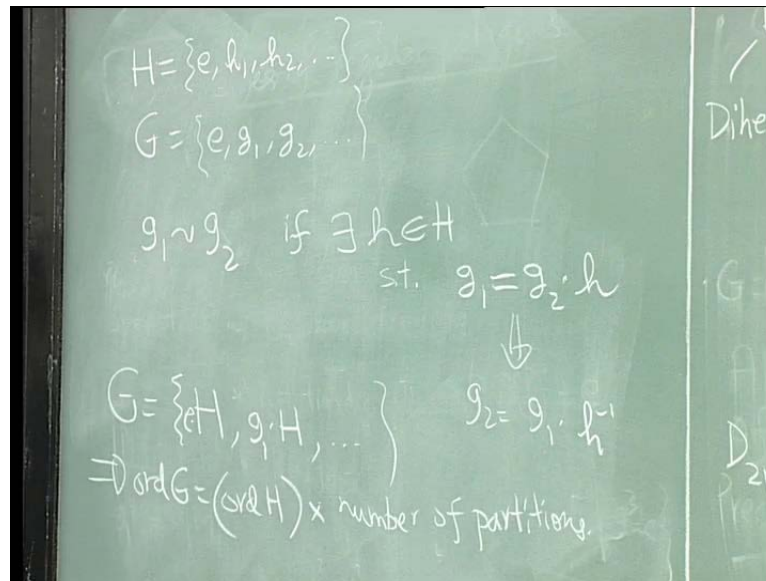 H={e, h₁, h₂, ...}
G={e, g₁, g₂, ...}
g₁~g₂ if ∃ h∈H
s.t. g₁=g₂·h
⇓
g₂= g₁· h⁻¹
G={eH, g₁·H, ...}
⇒ ord G=(ord H) x number of partitions.
Dihe
G=
D₂